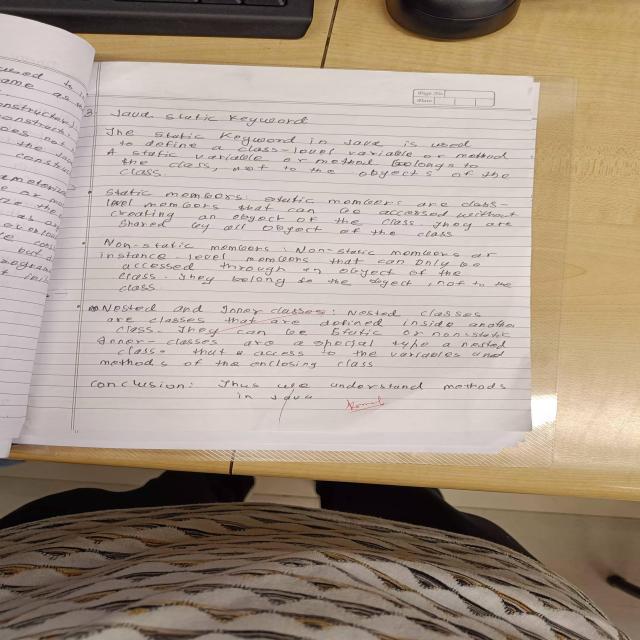 Page No.
Date
3. Java static keyword
The static keyword in Java is used
to define a class-level variable or method
A static variable or method belongs to
the class, not to the objects of the
class.
• Static members: Static members are class-
level members that can be accessed without
creating an object of the class. They are
shared by all object of the class
• Non-static members: Non-static members or
instance-level members that can only be
accessed through an object of the
class. They belong to the object, not to the
class.
• Nested and Inner classes: Nested classes
are classes that are defined inside another
class. They can be static or non-static
Inner-classes are a special type a nested
class that a access to the variables and
methods of the enclosing class
conclusion: Thus we understand methods
in Java